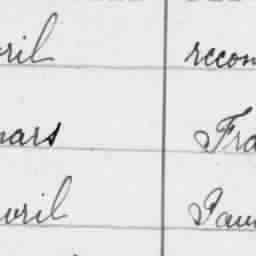 ril recon
nars Fra
vril Pau